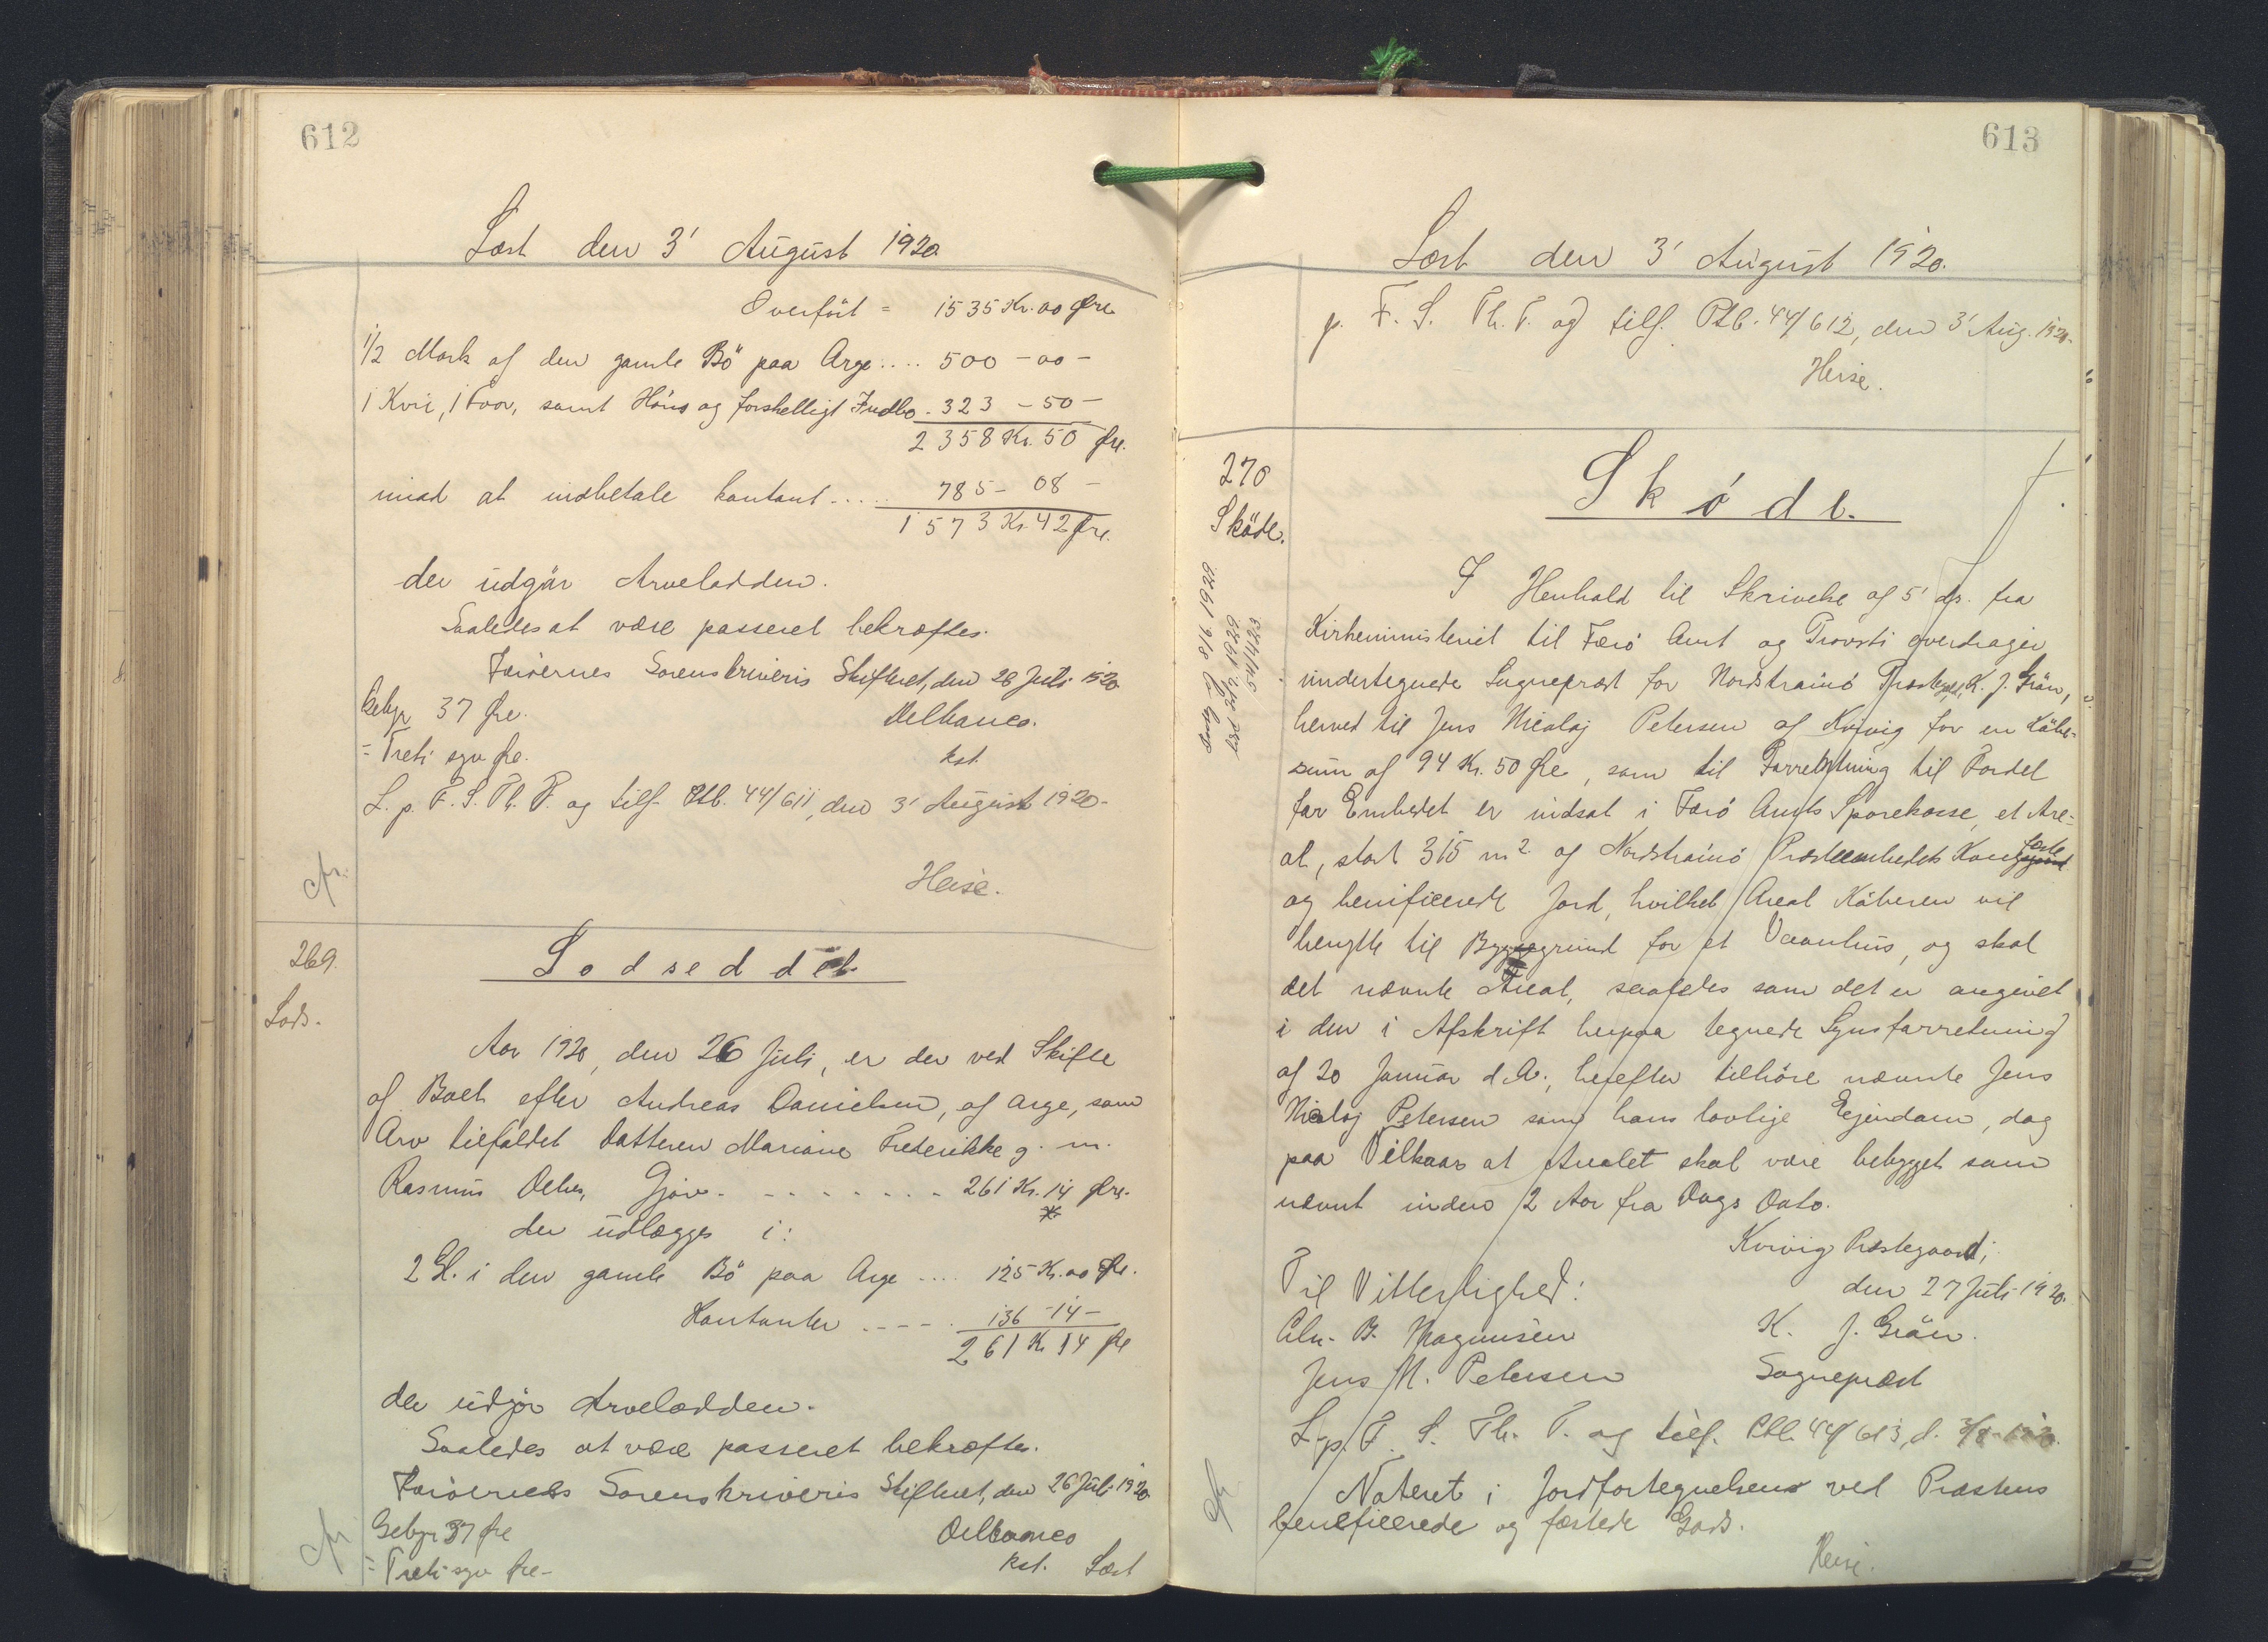 612
Læst den 3' August 1920
Overfört = 1535 Kr. 00 Øre.
1/2 Mark af den gamle Bö paa Arge .... 500 - 00 -
1 Kvie, 1 Faar, samt Höns og forskelligt Indbo . 323 - 50 -
2358 Kr. 50 Øre.
mod at indbetale kontant ..... 785 - 08 -
1573 Kr. 42 Øre.
der udgör Arvelodden.
Saaledes at være passeret bekræftes.
Færöernes Sorenskriveris Skifteret, den 26 Juli 1920
Gebyr 37 Øre.
= Treti syv Øre.
Delbanco.
kst.
L. p. F. S. Th. P. og tilf. Ptb. 44/611, den 3' August 1920-
Heise.
269.
Lods.
Lodseddel
Aar 1920, den 26 Juli, er der ved Skifte
af Boet efter Andreas Danielsen, af Arge, som
Arv tilfaldet Datteren Mariane Frederikke g. m.
Rasmus Gjov. - - - - - - - - 261 Kr. 14 Øre.
der udlægges i:
2 Gl. i den gamle Bö paa Arge .... 125 Kr. 00 Øre.
Kontanter - - - - . 136 - 14 -
261 Kr 14 Øre
der udgör Arvelodden.
Saaledes at være passeret bekræftes.
Færöernes Sorenskriveris Skifteret, den 26 Juli 1920
Gebyr 37 Øre
= Treti syv Øre-
Delbanco
kst.
Læst
613
Læst den 3' August 1920.
p. F. S. Th. P. og tilf. Ptb. 44/612, den 3' Aug. 1920-
Heise.
270
Sköde.
Sköde.
I Henhold til Skrivelse af 5' ds. fra
Kirkeministeriet til Færö Amt og Provsti overdrager
undertegnede Sognepræst for Nordstrømö Præstegæld, K. J. Grön,
herved til Jens Nicolaj Petersen af Kvivig for en Købe-
sum af 94 Kr. 50 Øre, som til Forrentning til Fordel
for Embedet er indsat i Færö Amts Sparekasse, et Are-
al, stort 315 m2 af Nordstrømö Præsteembedets Kongsfæste
og benificerede Jord, hvilket Areal Köberen vil
benytte til Byggegrund for et Vaanhus, og skal
det nævnte Areal, saaledes som det er angivet
i den i Afskrift herpaa tegnede Synsforretning
af 20 Januar d. A., herefter tilhöre nævnte Jens
Nicolaj Petersen som hans lovlige Ejendom, dog
paa Vilkaar at Arealet skal være bebygget som
nævnt inden 2 Aar fra Dags Dato.
Kvivig Præstegaard,
den 27 Juli 1920.
Til Vitterlighed:
K. J. Grön.
B. Magnussen
Sognepræst
Jens M. Petersen
L. p. F. S. Th. P. og tilf. Ptb. 44/613, d. 3/8-1920.
Noteret i Jordfortegnelsen ved Præstens
beneficerede og fæstede Gods.
Heise.